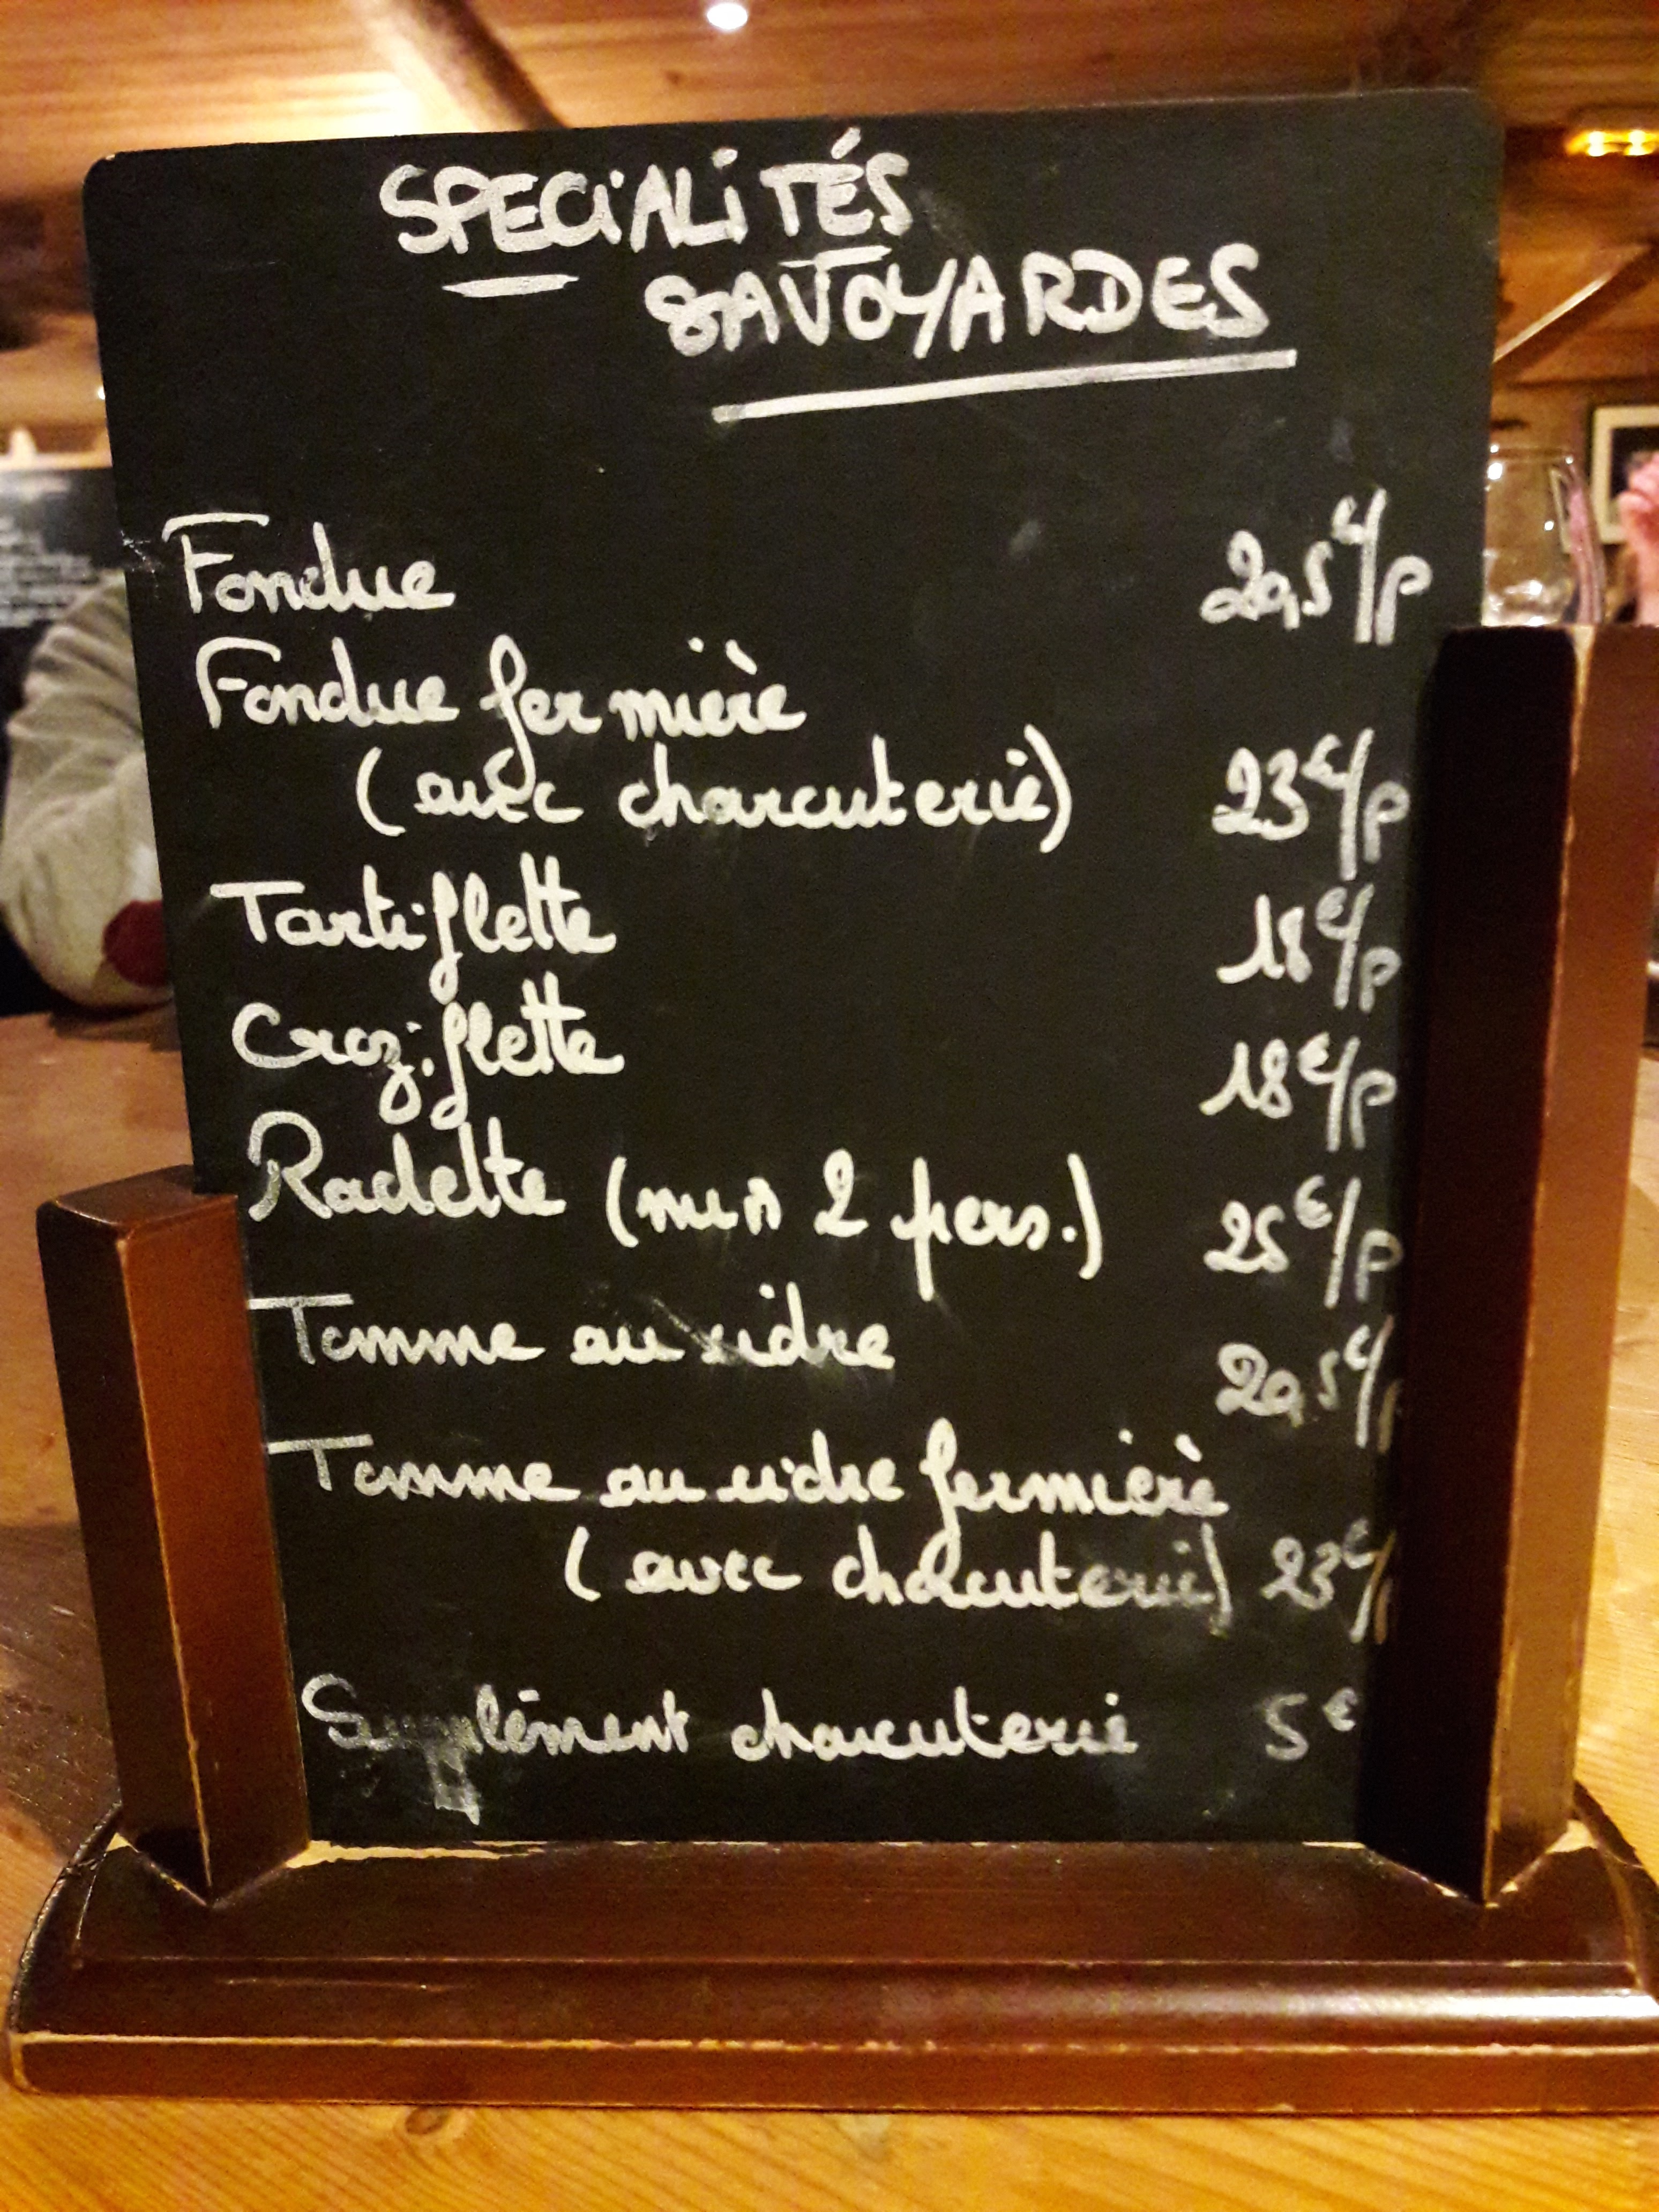 SPECIALITÉS
SAVOYARDES
Fondue 20,5€/p
Fondue fermière
(avec charcuterie) 23€/p
Tartiflette 18€/p
Croziflette 18€/p
Raclette (min 2 pers.) 25€/p
Tomme au cidre 20,5€/p
Tomme au cidre fermière
(avec charcuterie) 23€/p
Supplément charcuterie 5€